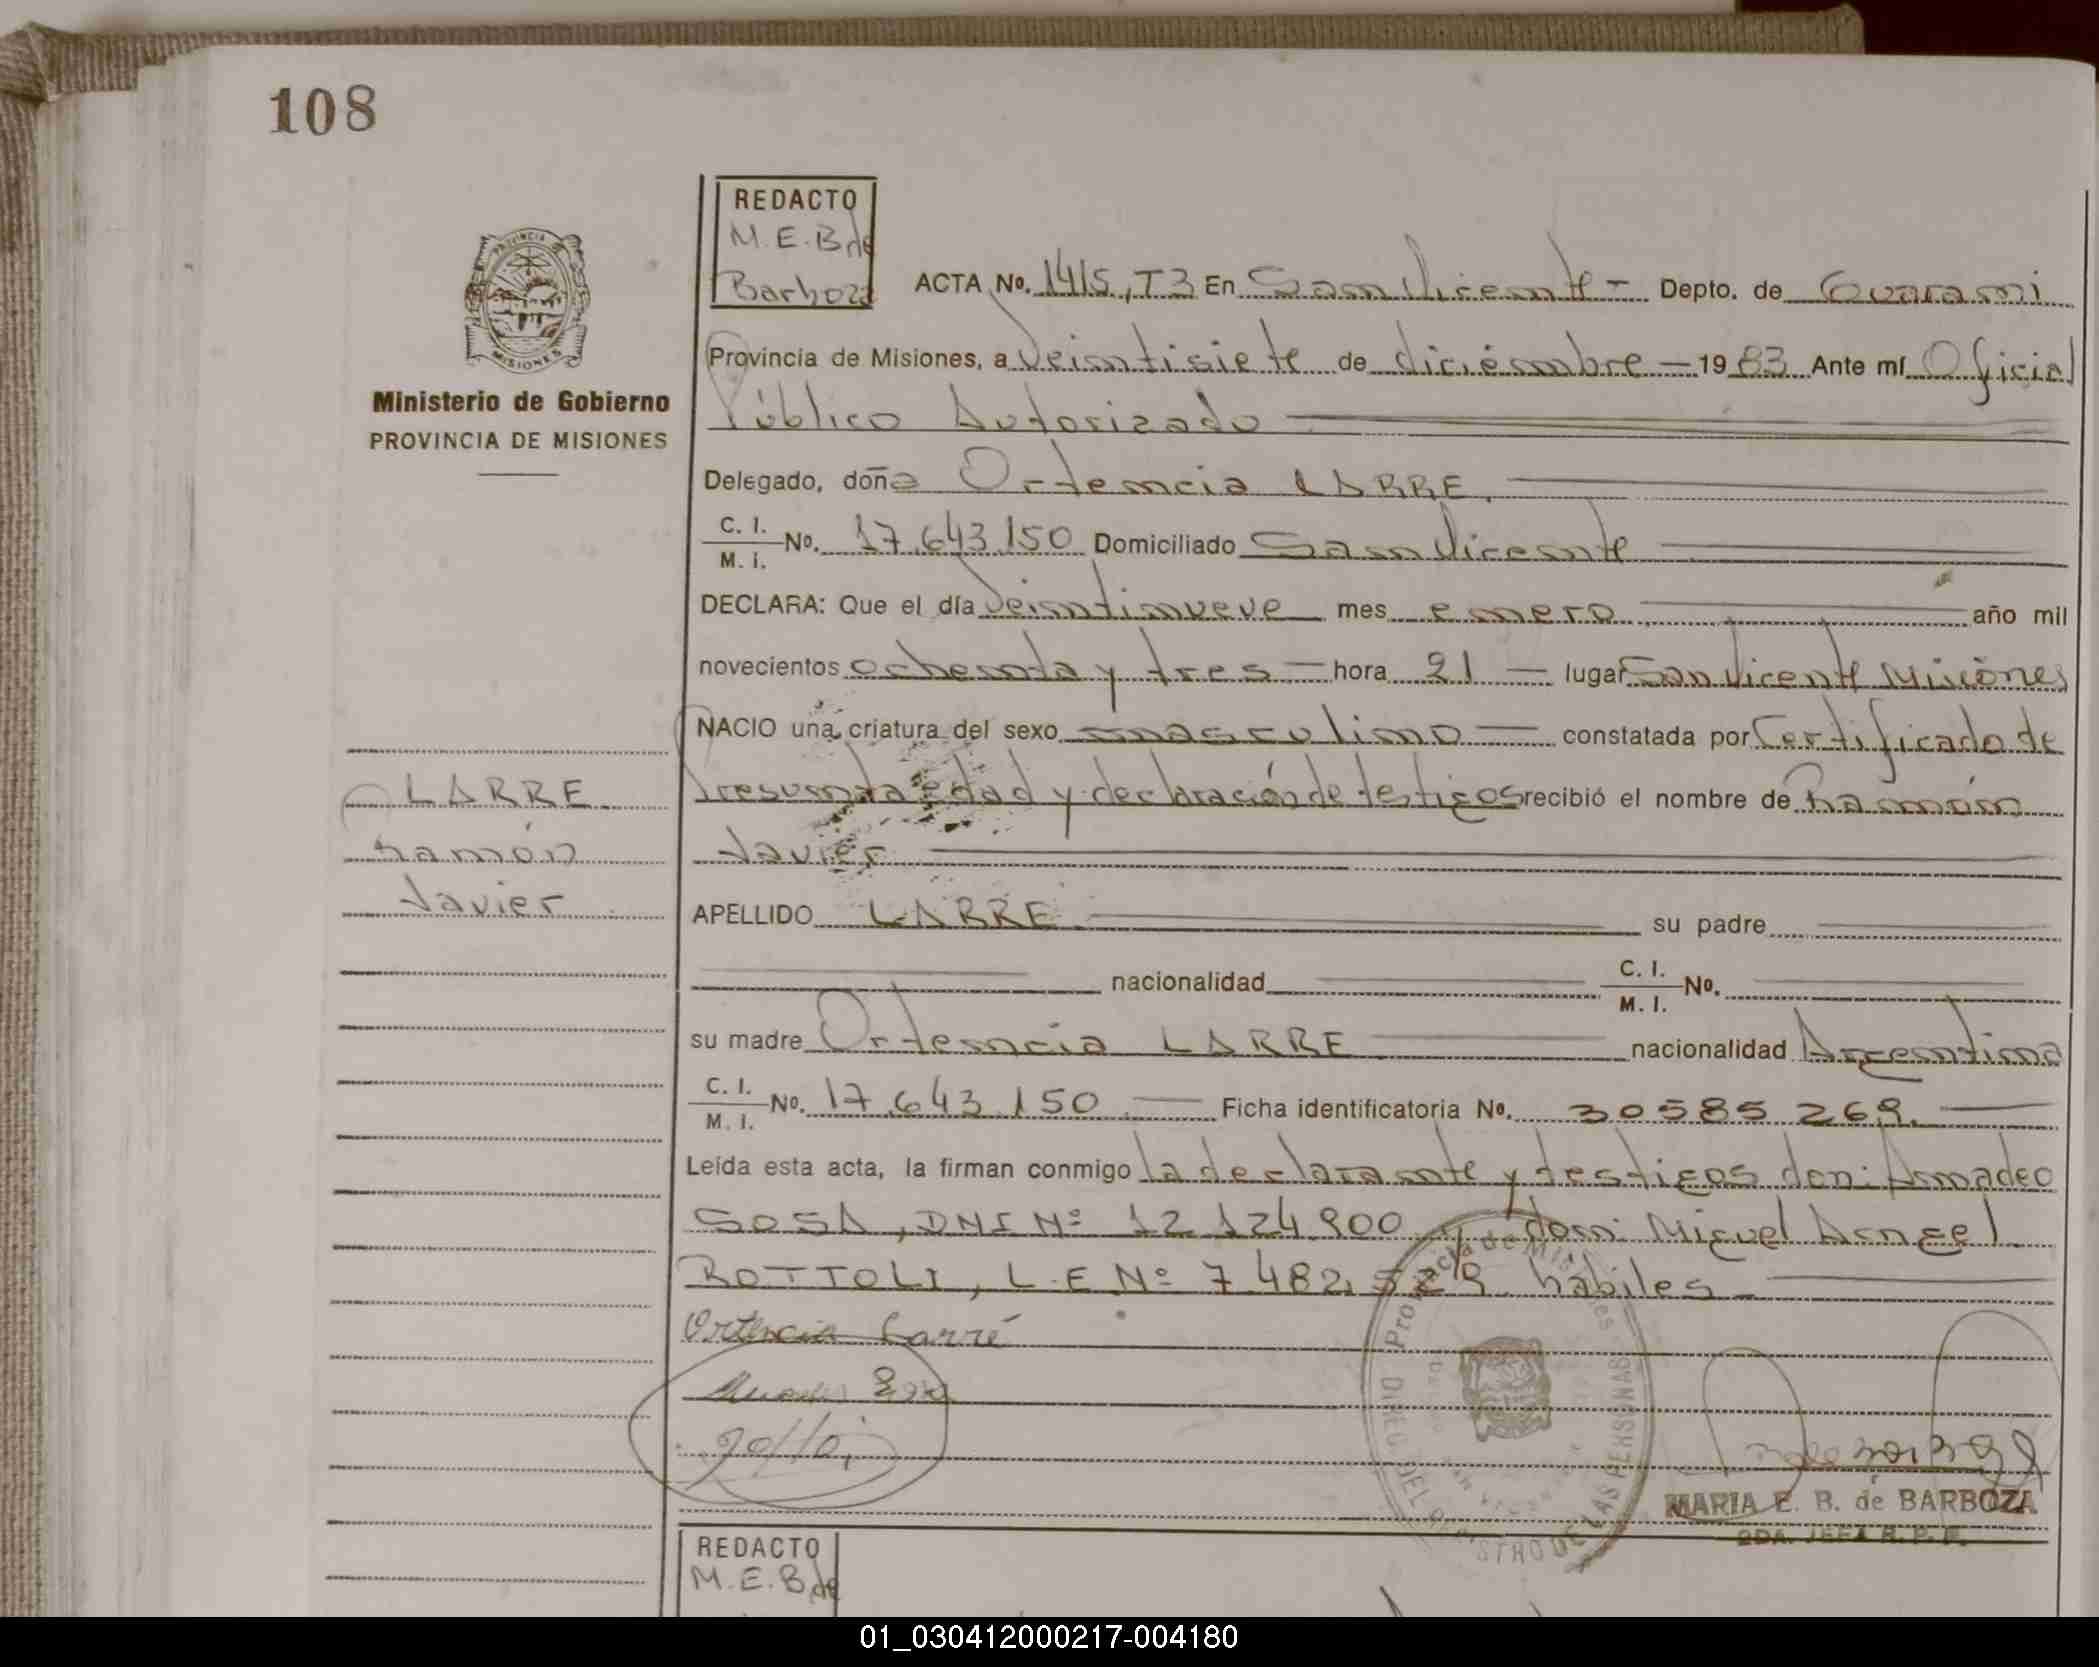 108
REDACTO
M.E.B de
Barboza
PROVINCIA
MISIONES
Ministerio de Gobierno
PROVINCIA DE MISIONES
ACTA Nº. 1415, T3 En San Vicente - Depto. de Guaraní
Provincia de Misiones, a Veintisiete de diciembre - 1983 Ante mí Oficial
Público Autorizado
Delegado, doña Ortencia LARRE.
C. I.
M. I. Nº. 17.643.150 Domiciliado San Vicente
DECLARA: Que el día Veintinueve mes enero año mil
novecientos ochenta y tres - hora 21 - lugar San Vicente Misiones
NACIO una criatura del sexo masculino - constatada por Certificado de
Presunta edad y declaración de testigos recibió el nombre de Ramón
Javier
LARRE
Ramón
Javier
APELLIDO LARRE su padre
nacionalidad C. I.
M. I. Nº.
su madre Ortencia LARRE nacionalidad Argentina
C. I.
M. I. Nº. 17.643.150 - Ficha identificatoria Nº. 30585269. -
Leída esta acta, la firman conmigo la declarante y testigos don: Amadeo
SOSA, DNI Nº 12.124.900 y don: Miguel Angel
BOTTOLI, L.E Nº 7.482.529 hábiles -
Ortencia Larré
Provincia de Misiones
DEL REGISTRO DE LAS PERSONAS
MARIA E. B. de BARBOZA
2DA. JEFA R. P. P.
REDACTO
M.E.B de
01_030412000217-004180